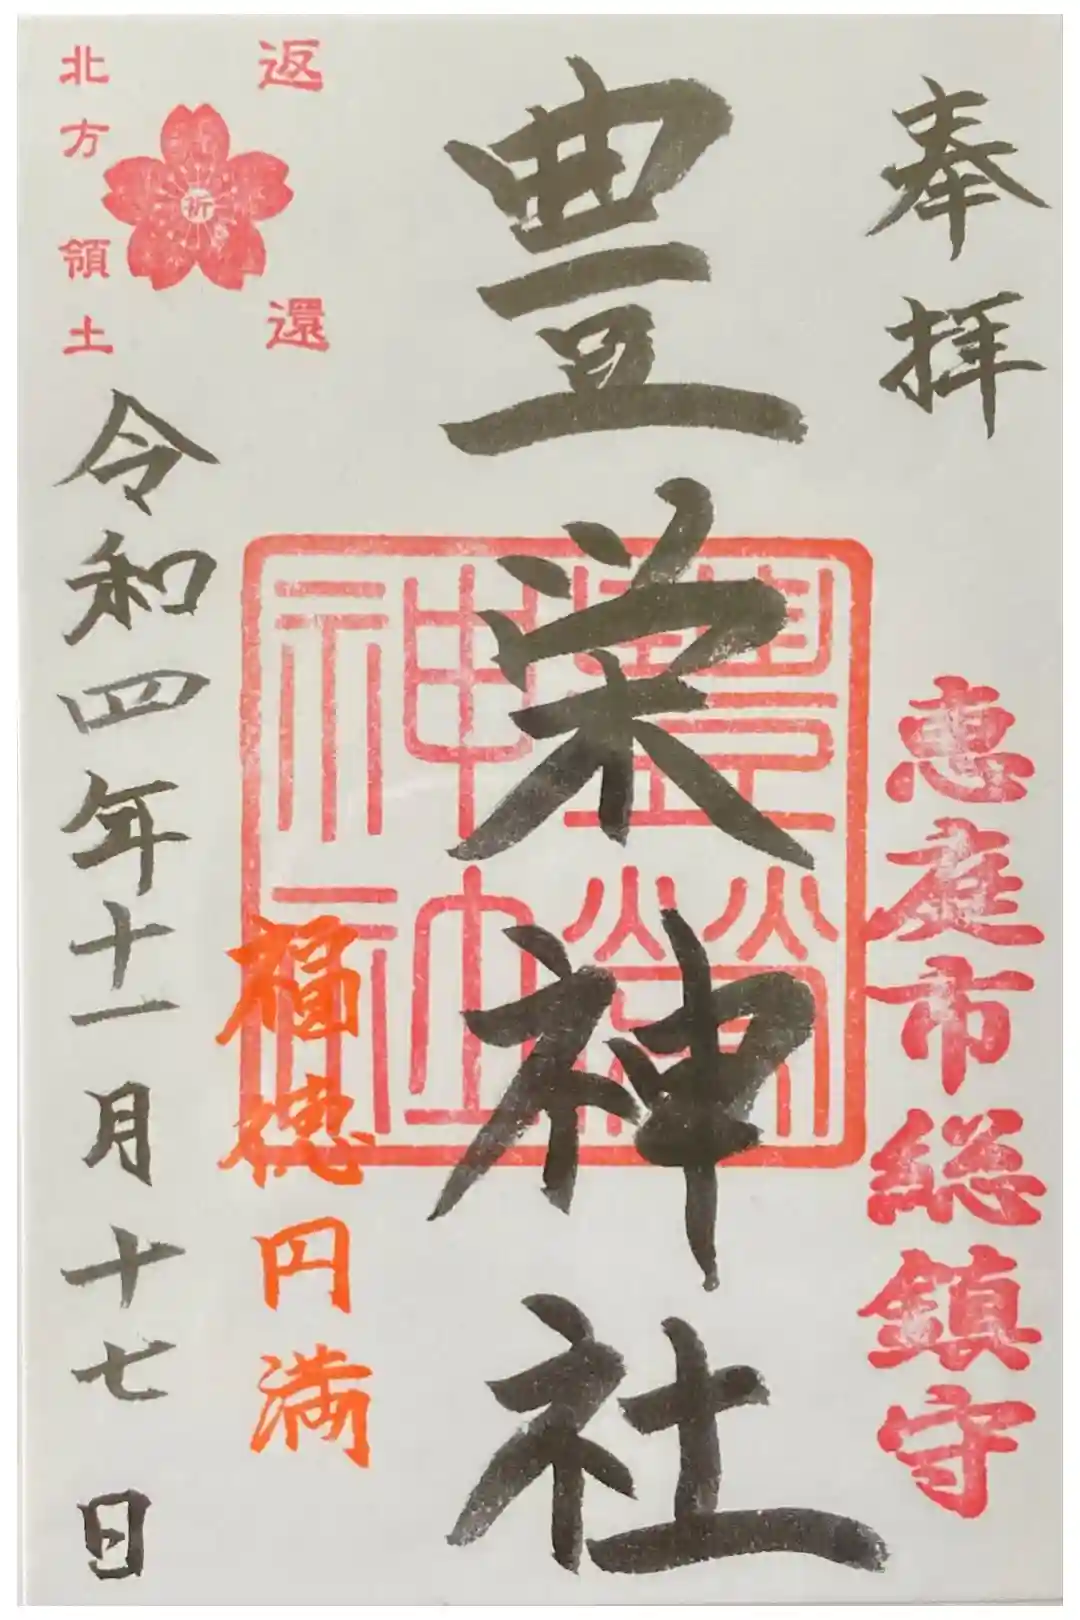 奉拝
恵庭市総鎮守
豊栄神社
豊榮神社
福徳円満
返還
祈
北方領土
令和四年十一月十七日